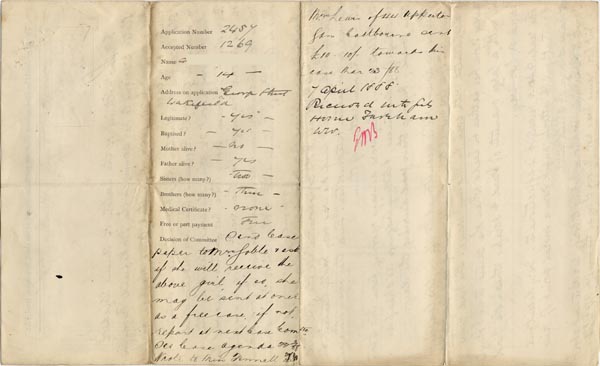 Application Number 2487
Accepted Number 1269
Name
Age - 14 -
Address on application George Street
Wakefield
Legitimate? - Yes -
Baptised? - Yes -
Mother alive? - No -
Father alive? - Yes
Sisters (how many?) Two -
Brothers (how many?) - Three -
Medical Certificate? - none -
Free or part payment Free
Decision of Committee Send case
paper to Mrs Goble & ask
if she will receive the
above girl, if so, she
may be sent at once
as a free case, if not
report at next Case Comtte
See Case agenda
Lewin offers
from Eastbourne sent
£10. 10/ towards this
case Mar
7 April 1888
Received into
Home Fareham